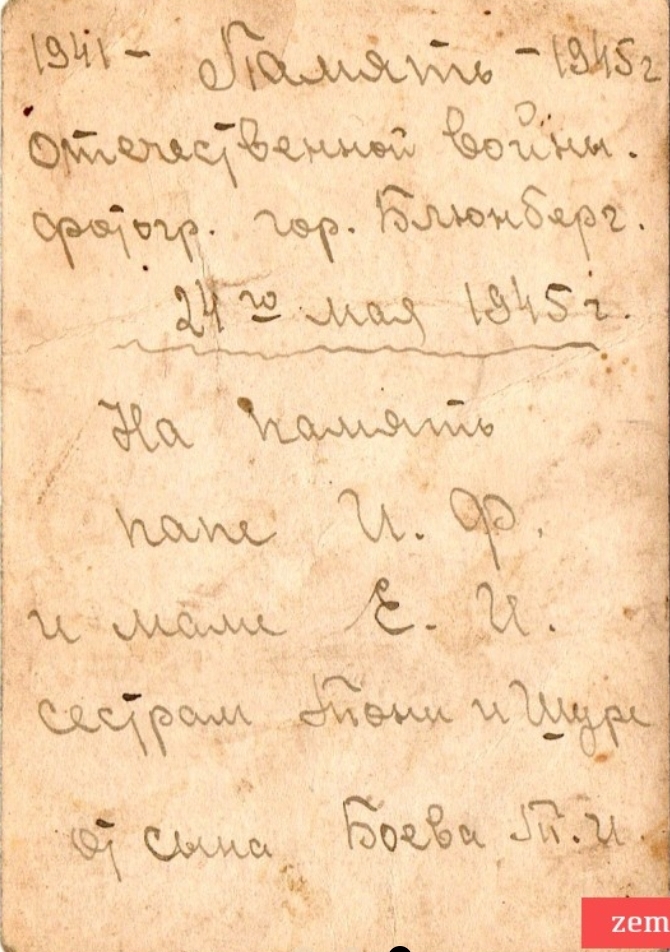 1941 - Память - 1945г
отечественной войны.
фотогр. гор. Блюнберг.
24го мая 1945г.
На память
папе И. Ф.
и маме Е. И.
сестрам Тони и Шуре
от сына Боева Т. И.
zem